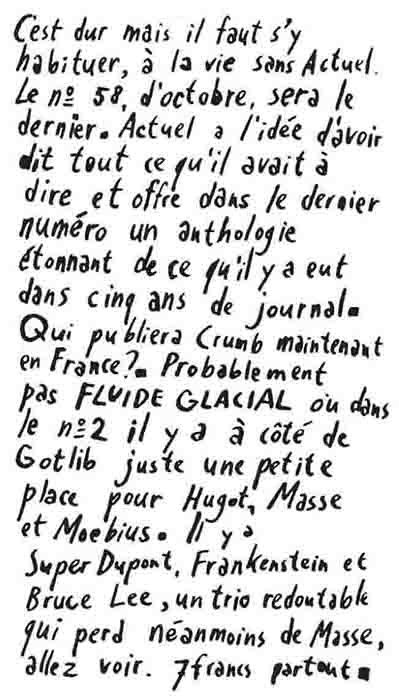 C'est dur mais il faut s'y
habituer, à la vie sans Actuel.
Le nº 58, d'octobre, sera le
dernier. Actuel a l'idée d'avoir
dit tout ce qu'il avait à
dire et offre dans le dernier
numéro un anthologie
étonnant de ce qu'il y a eut
dans cinq ans de journal.
Qui publiera Crumb maintenant
en France?. Probablement
pas FLUIDE GLACIAL où dans
le nº2 il y a à côté de
Gotlib juste une petite
place pour Hugot, Masse
et Moebius. Il y a
Super Dupont, Frankenstein et
Bruce Lee, un trio redoutable
qui perd néanmoins de Masse,
allez voir. 7 francs partout.